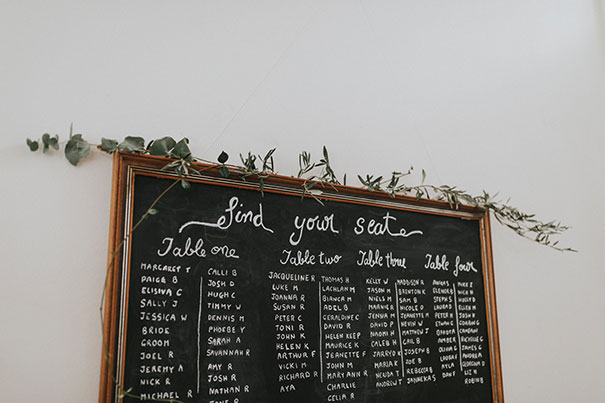 find your seat
Table one
MARGARET T
PAIGE B
ELISHVA C
SALLY J
JESSICA W
BRIDE
GROOM
JOEL R
JEREMY A
NICK R
MICHAEL
CALLI B
JOSH D
HUGH C
TIMMY W
DENNIS M
PHOEBE Y
SARAH A
SAVANNAH R
AMY R
JOSH R
NATHAN
Table two
JACQUELINE R
LUKE M
JOANNA R
SUSAN R
PETER C
TONI R
JOHN K
HELEN K
ARTHUR F
VICKI M
RICHARD R
AYA
THOMAS H
LACHLAN M
BIANCA M
ADEL B
GERALDINE C
DAVID R
HELEN KEEP
MAURICE K
JEANETTE F
JOHN M
MARY ANN R
CHARLIE
CELIA R
Table three
KELLY W
JASON M
NIELS M
MARNIE B
JENNA M
DAVID P
NAOMI H
CALEB H
JARRYD K
MARIA R
NEUDA T
ANDREW T
MADDISON R
BRENTON K
SAM B
NICOLE D
JEANETTE M
KEVIN W
MATTHEW J
GAIL B
JOSEPH B
ZOE B
REBECCA B
Table four
ANGUS
ELENOR
STEPH S
LAURA
PETER M
ETHAN C
SARAH
AMBER
OLIVIA G
LAURA
AYLA
DANI
MIKE E
NICK H
HUGO H
ED W
JOSH R
JOSH E
CORBAN G
CAMERON
NICHOLLE G
JAMES C
ANDREA C
GEORGINA D
LIZ M
ROBIN E